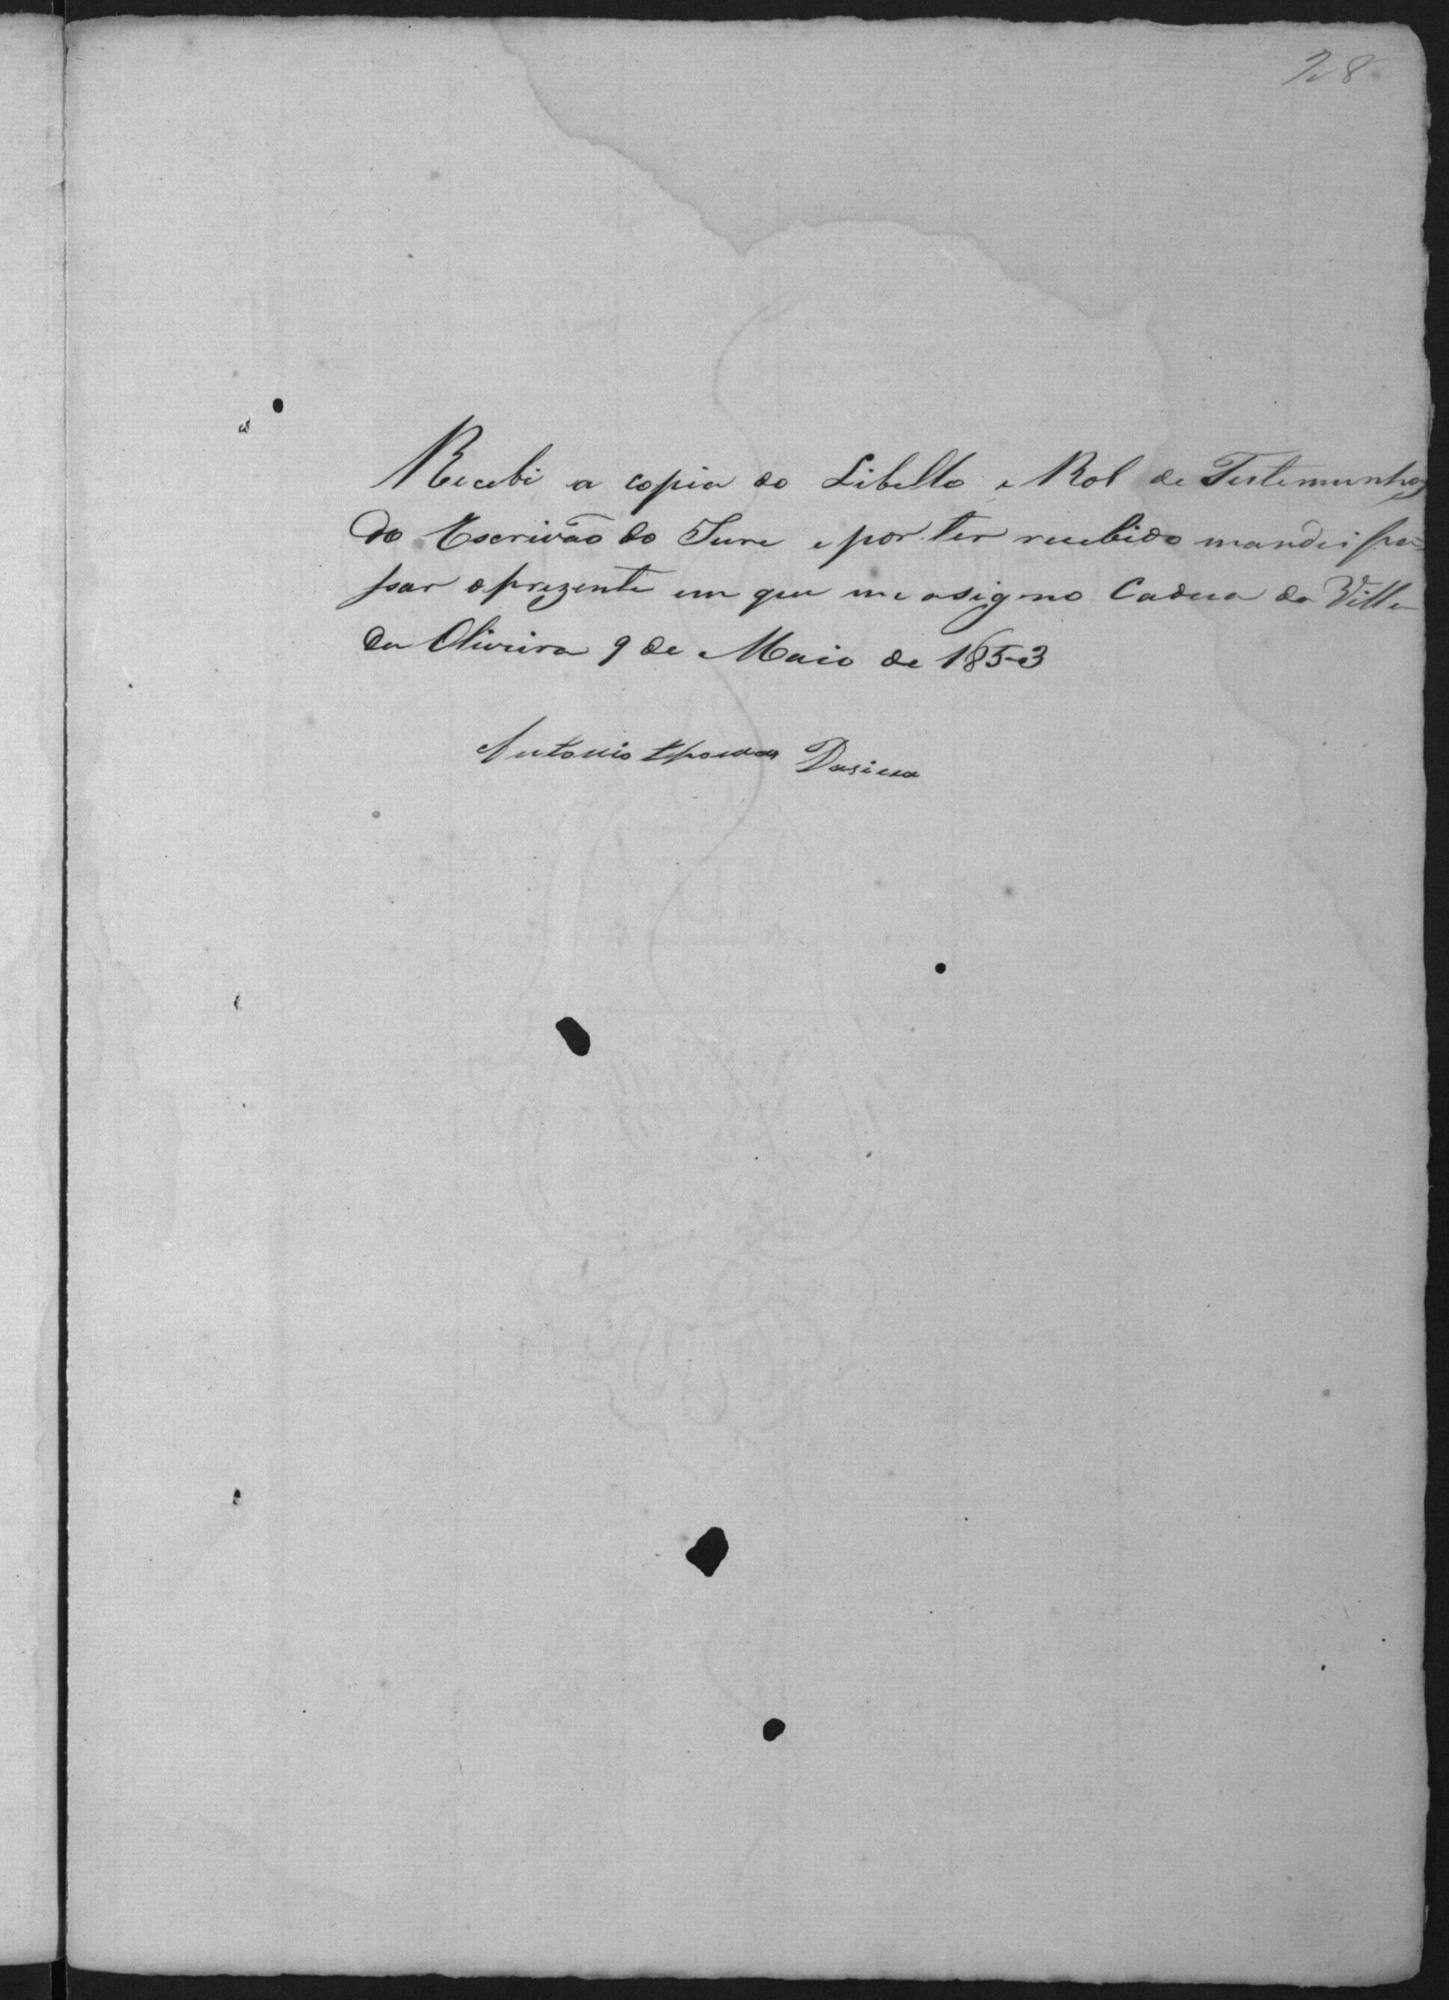 28
Recebi a copia do Libello e Rol de Testemunhas
do Escrivão do Jure e por ter recebido mandei pa=
ssar o prezente em que me asigno Cadeia da Villa
da Oliveira 9 de Maio de 1853
Antonio thomas Dasilva